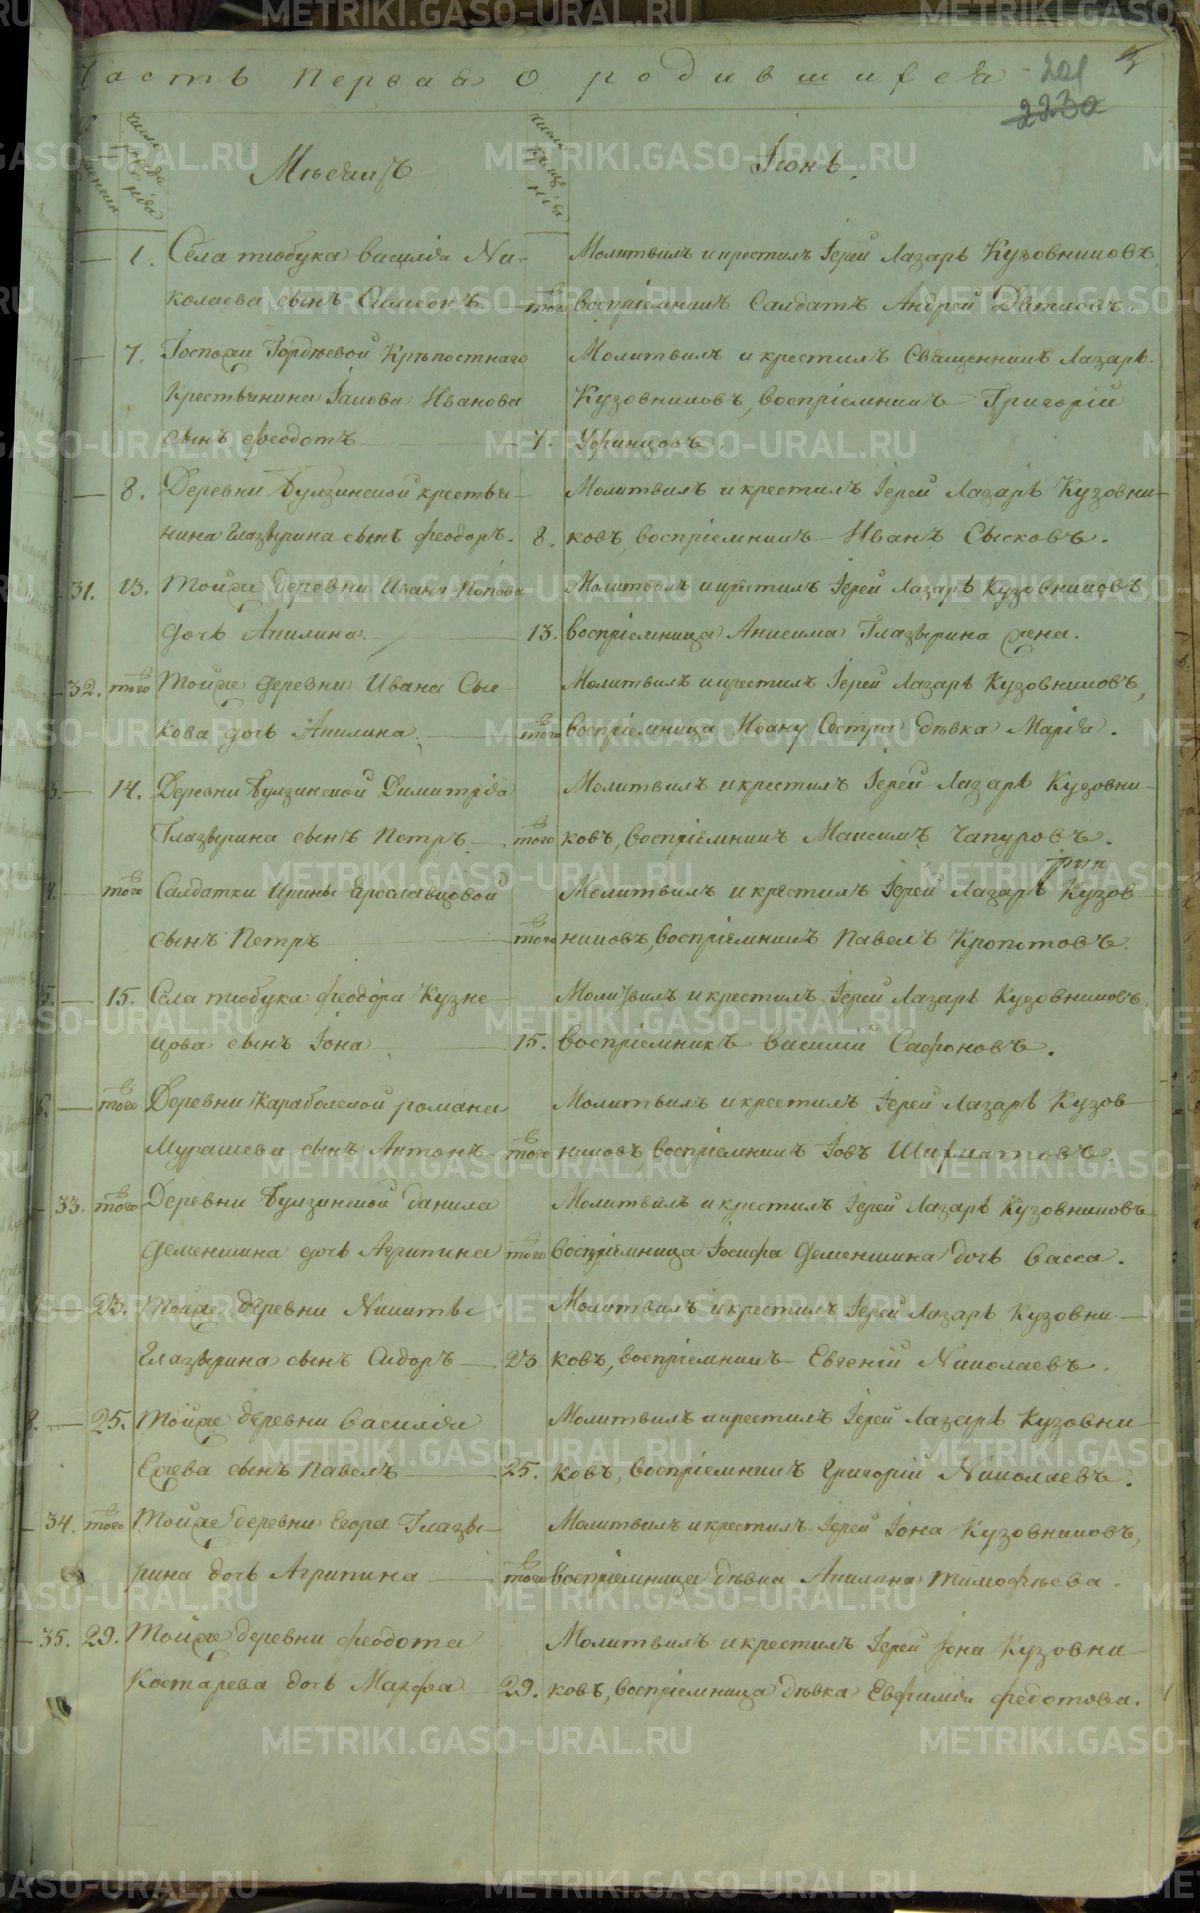 Часть первая о родившихся
201
2230
число рожденія
число крещенія
Мѣсяцъ
Іюнь.
1. Села тюбука василія Ни- Молитвилъ и крестилъ Іерей Лазарь Кузовниковъ,
колаева сынъ Симеонъ того воспріемникъ Салдатъ Андрей Данилов.
7. Госпожи Гордѣевой Крѣпостнаго Молитвилъ и крестилъ Священникъ Лазарь
Крестьянина Іакова Иванова Кузовниковъ, воспріемникъ Григорій
сынъ феодотъ 7. Уфинцовъ.
8. Деревни Булзинской крестья- Молитвилъ и крестилъ Іерей Лазарь Кузовни-
нина Глазырина сынъ феодоръ. 8. ковъ, воспріемникъ Иванъ Сысковъ.
31. 13. Тойже деревни Ивана Попова Молитвилъ и крестилъ Іерей Лазарь Кузовниковъ
дочь Акилина. 13. воспріемница Анисима Глазырина жена.
32. того Тойже деревни Ивана Сыс- Молитвилъ и крестилъ Іерей Лазарь Кузовниковъ,
кова дочь Акилина, того воспріемница Ивану Сестра дѣвка Марія.
14. Деревни Булзинской Димитрія Молитвилъ и крестилъ Іерей Лазарь Кузовни-
Глазырина сынъ Петръ того ковъ, воспріемникъ Максимъ Чапуровъ.
того Салдатки Ирины Ярославцовой Молитвилъ и крестилъ Іерей Лазарь Кузов-
сынъ Петръ того никовъ, воспріемникъ Павелъ Кропотовъ.
15. Села тюбука феодора Кузне- Молитвилъ и крестилъ Іерей Лазарь Кузовниковъ
цова сынъ Іона 15. воспріемникъ василій Сафоновъ.
того Деревни Караболской романа Молитвилъ и крестилъ Іерей Лазарь Кузов-
Мурашева сынъ Антонъ того никовъ, воспріемникъ Іовъ Шихматовъ.
33. того Деревни Булзинской данила Молитвилъ и крестилъ Іерей Лазарь Кузовниковъ
Деменшина дочь Агрипина того воспріемница Іосифа Деменшина дочь васса.
23. Тойже деревни Никиты Молитвилъ и крестилъ Іерей Лазарь Кузовни-
Глазырина сынъ Сидоръ 23 ковъ, воспріемникъ Евгеній Николаевъ.
8. 25. Тойже деревни василія Молитвилъ и крестилъ Іерей Лазарь Кузовни-
сынъ Павелъ 25. ковъ, воспріемникъ Григорій Николаевъ.
34. того Тойже деревни Егора Глазы- Молитвилъ и крестилъ Іерей Іона Кузовниковъ,
рина дочь Агрипина того воспріемница дѣвка Акилина тимофѣева.
35. 29. Тойже деревни феодота Молитвилъ и крестилъ Іерей Іона Кузовни-
Костарева дочь Марфа 29. ковъ, воспріемница дѣвка Евфимія федотова.
METRIKI.GASO-URAL.RU